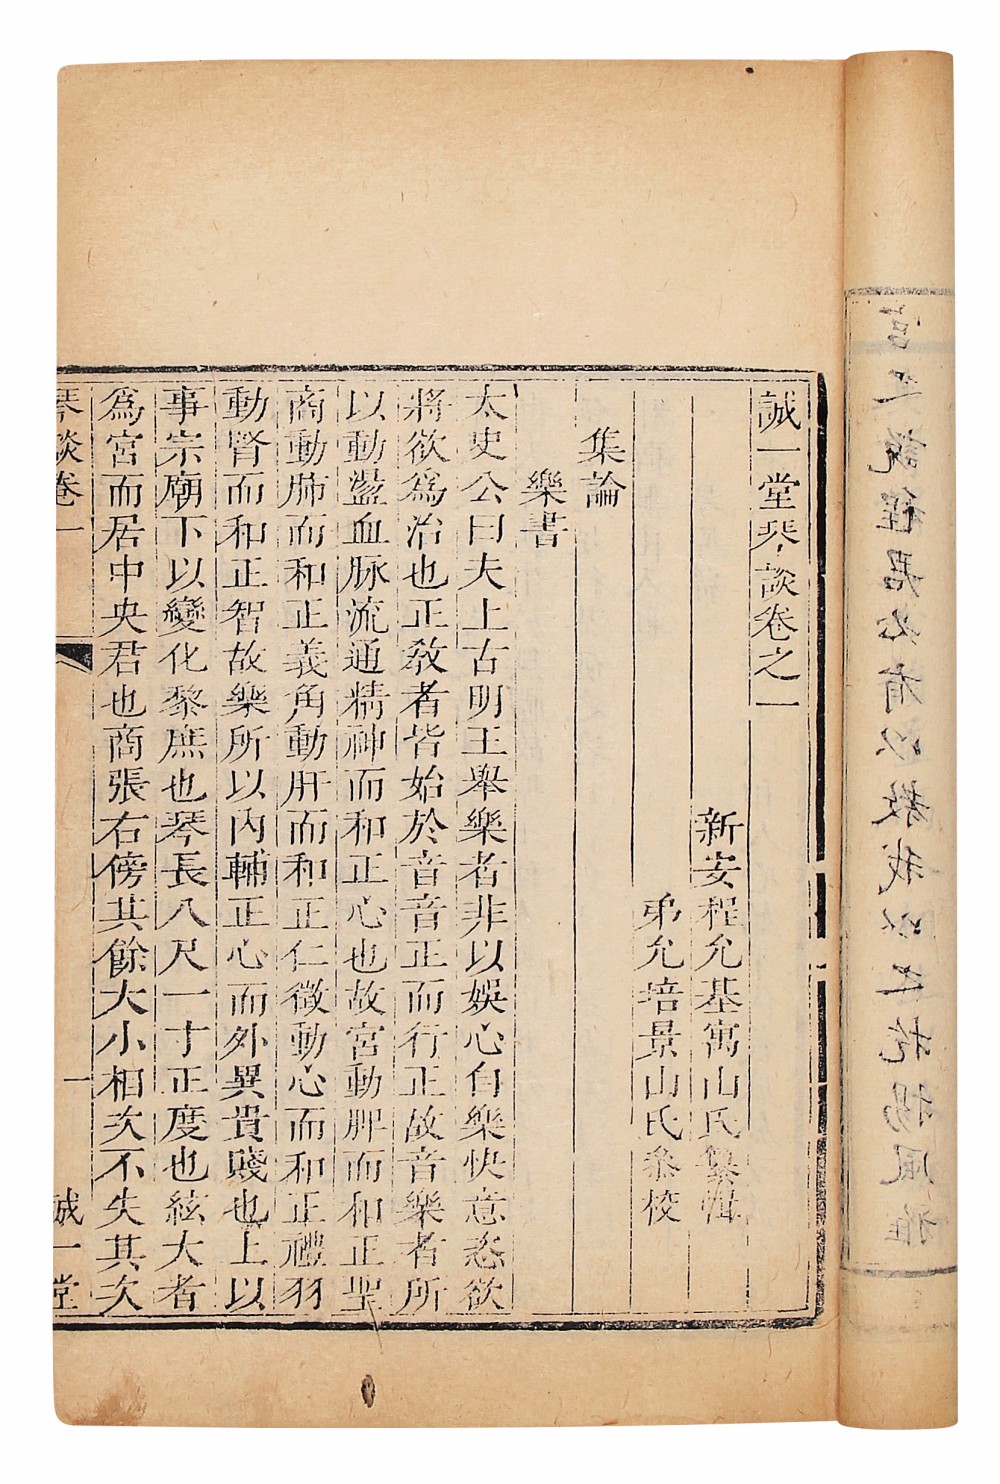 說程君必有以教我以之扢揚風雅
誠一堂琴談卷之一
新安程允基寓山氏纂輯
弟允培景山氏叅校
集論
樂書
太史公曰夫上古明王舉樂者非以娛心自樂快意恣欲
將欲爲治也正敎者皆始於音音正而行正故音樂者所
以動盪血脉流通精神而和正心也故宮動脾而和正聖
商動肺而和正義角動肝而和正仁徵動心而和正禮羽
動腎而和正智故樂所以內輔正心而外異貴賤也上以
事宗廟下以變化黎庶也琴長八尺一寸正度也絃大者
爲宮而居中央君也商張右傍其餘大小相次不失其次
琴談卷一
一
誠一堂